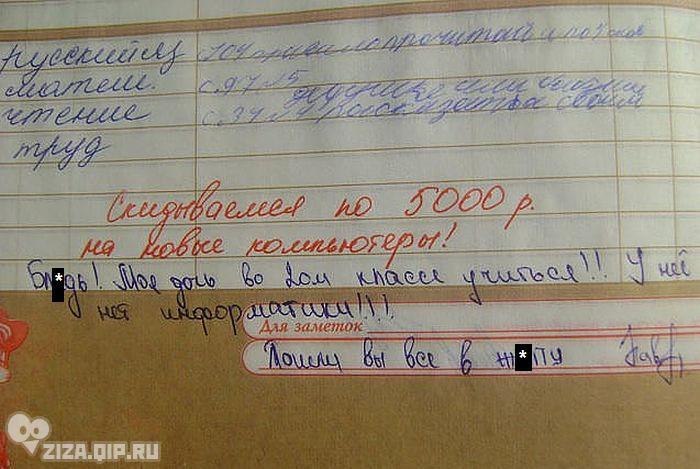 русский яз с 104 правило прочитай и
матем. с. 97 №5
чтение с. 34 №4 рассказать о своём
труд
Скидываемся по 5000 р.
на новые компьютеры!
Бл*дь! Моя дочь во 2ом классе учиться!!! У неё
нет информатики!!!!
Для заметок
Пошли вы все в ж*пу
ZIZA.QIP.RU